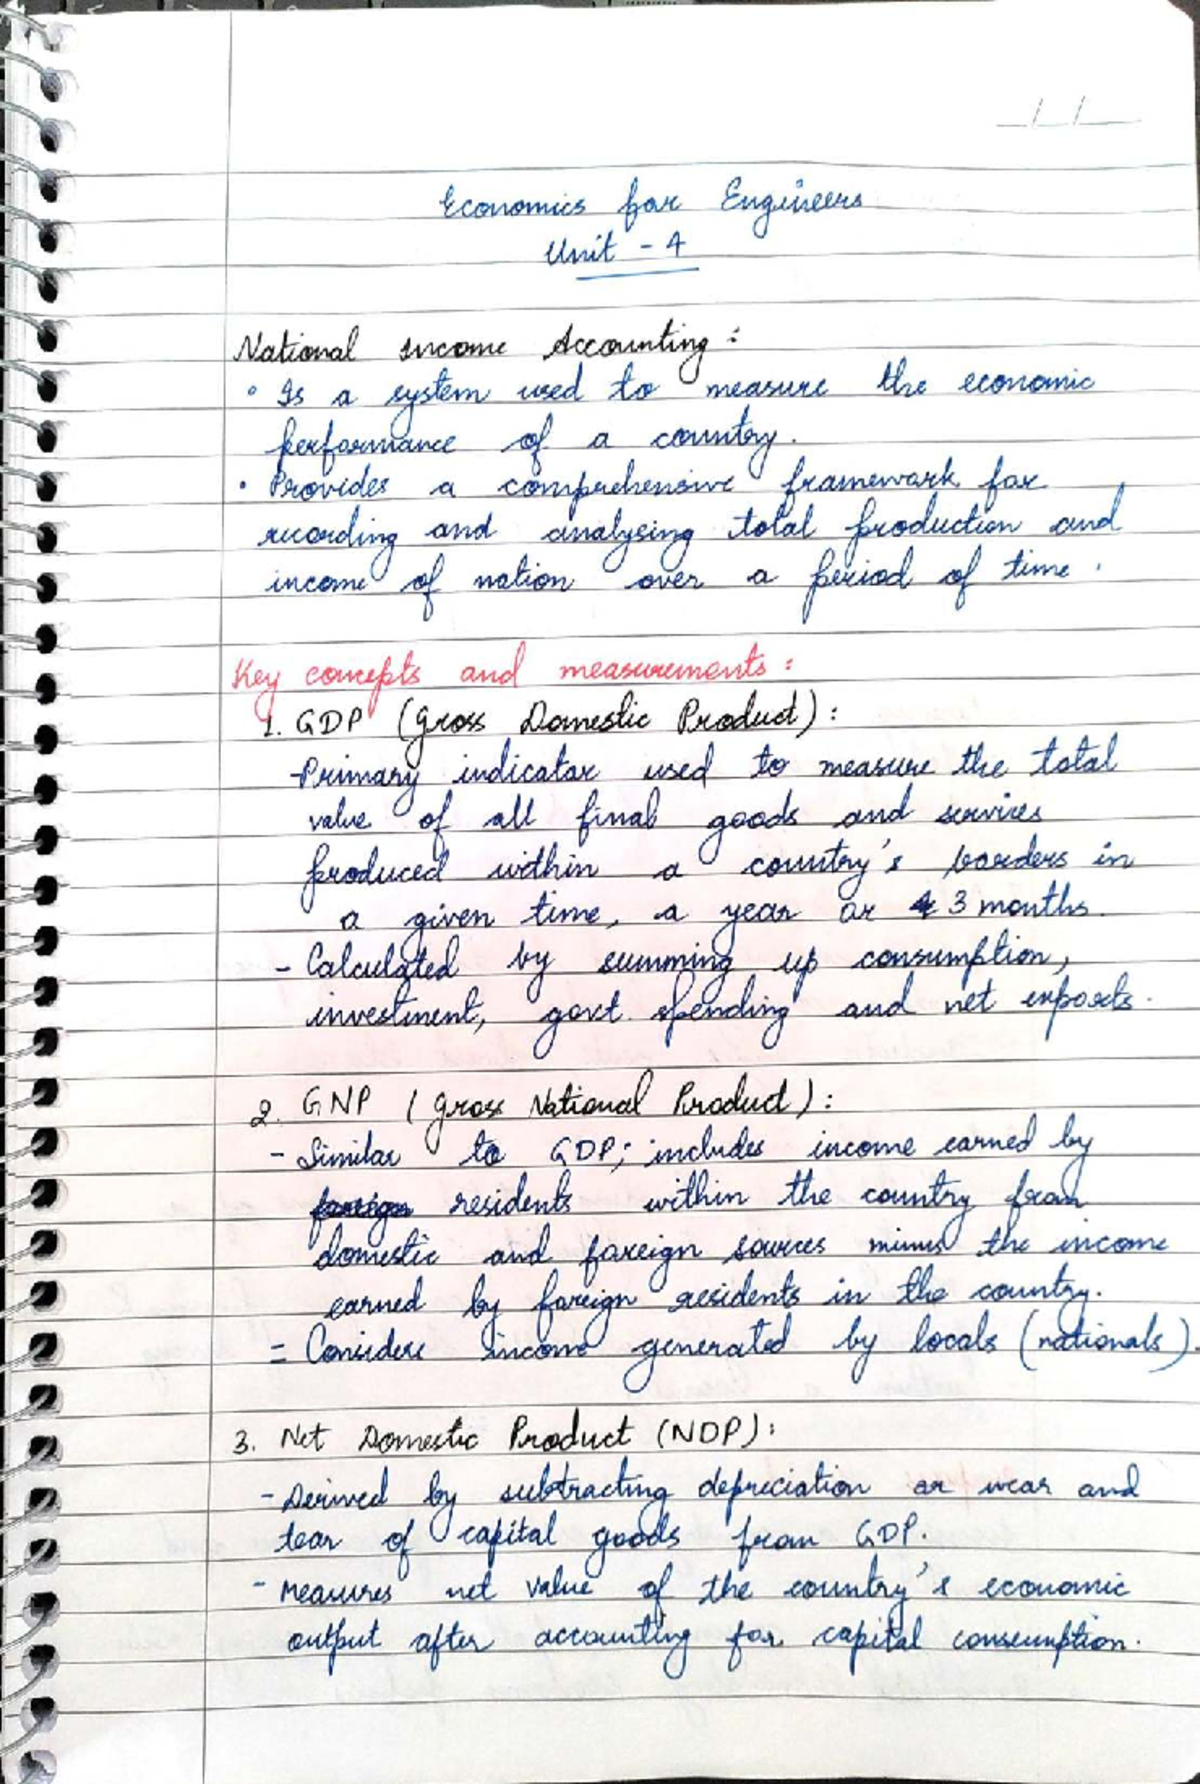 Economics for Engineers
Unit - 4
National Income Accounting :
• Is a system used to measure the economic
performance of a country.
• Provides a comprehensive framework for
recording and analysing total production and
income of nation over a period of time.
Key concepts and measurements :
1. GDP (Gross Domestic Product) :
- Primary indicator used to measure the total
value of all final goods and services
produced within a country's borders in
a given time, a year or 3 months.
- Calculated by summing up consumption,
investment, govt. spending and net exports.
2. GNP (Gross National Product) :
- Similar to GDP; includes income earned by
residents within the country from
domestic and foreign sources minus the income
earned by foreign residents in the country.
= Considere income generated by locals (nationals).
3. Net Domestic Product (NDP):
- Derived by subtracting depreciation or wear and
tear of capital goods from GDP.
- Measures net value of the country's economic
output after accounting for capital consumption.